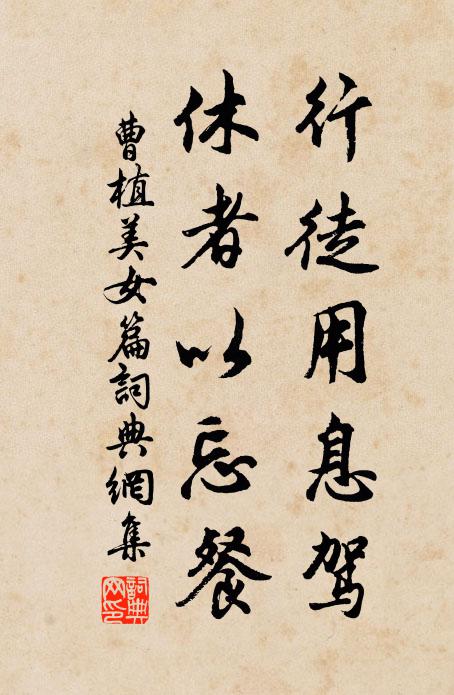 行徒用息駕
休者以忘餐
曹植美女篇詞典網集
詞典網印